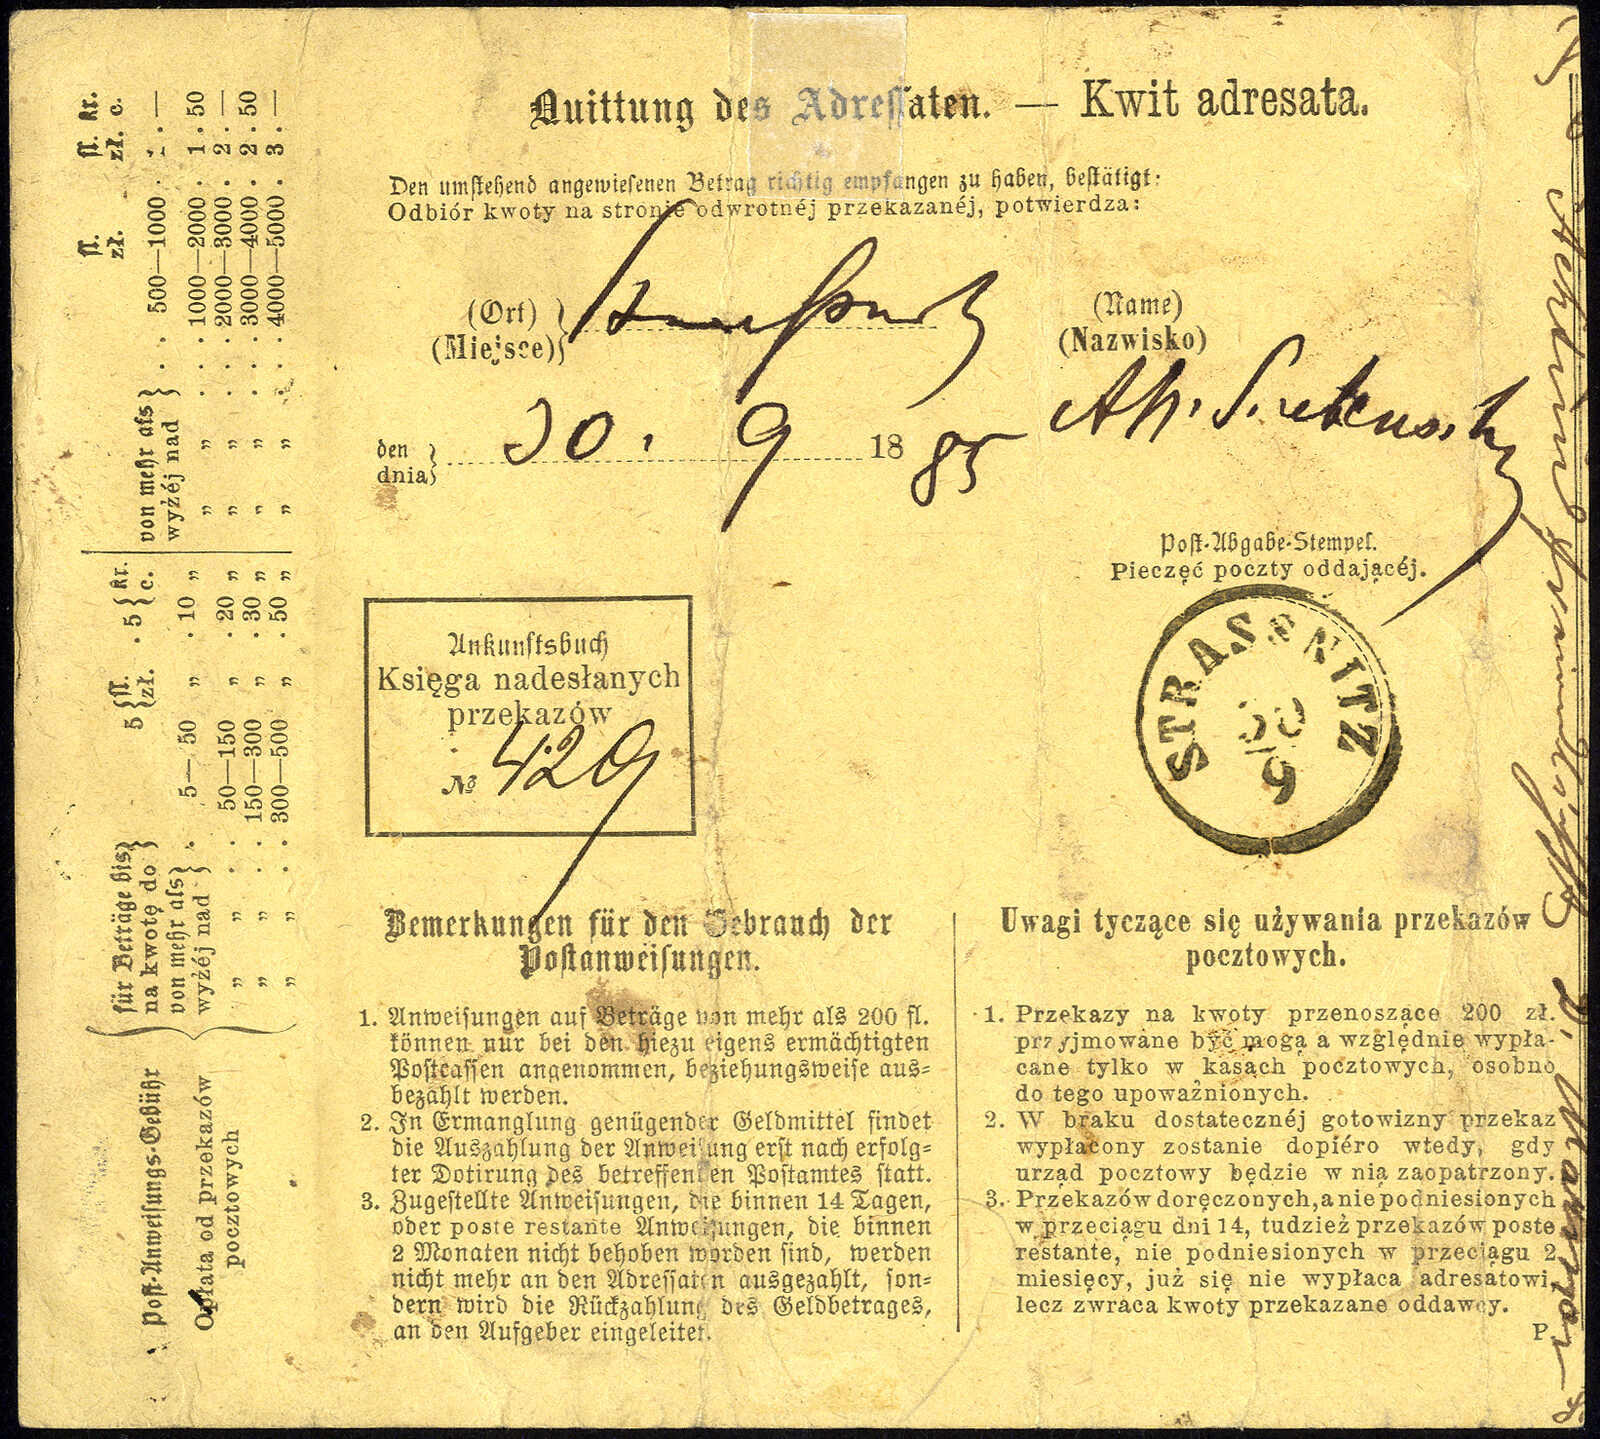 Quittung des Adressaten. — Kwit adresata.
Den umstehend angewiesenen Betrag richtig empfangen zu haben, bestätigt:
Odbiór kwoty na stronie odwrotnéj przekazanéj, potwierdza:
(Ort)
(Miejsce)
(Name)
(Nazwisko)
den
dnia
30. 9 1885
Post-Abgabe-Stempel.
Pieczęć poczty oddającéj.
STRASONITZ
30
9
Ankunftsbuch
Księga nadesłanych
przekazów
№ 429
Bemerkungen für den Gebrauch der
Postanweisungen.
1. Anweisungen auf Beträge von mehr als 200 fl.
können nur bei den hiezu eigens ermächtigten
Postcassen angenommen, beziehungsweise aus-
bezahlt werden.
2. In Ermanglung genügender Geldmittel findet
die Auszahlung der Anweisung erst nach erfolg-
ter Dotirung des betreffenden Postamtes statt.
3. Zugestellte Anweisungen, die binnen 14 Tagen,
oder poste restante Anweisungen, die binnen
2 Monaten nicht behoben worden sind, werden
nicht mehr an den Adressaten ausgezahlt, son-
dern wird die Rückzahlung des Geldbetrages,
an den Aufgeber eingeleitet.
Uwagi tyczące się używania przekazów
pocztowych.
1. Przekazy na kwoty przenoszące 200 zł.
przyjmowane być mogą a względnie wypła-
cane tylko w kasach pocztowych, osobno
do tego upoważnionych.
2. W braku dostatecznéj gotowizny przekaz
wypłacony zostanie dopiéro wtedy, gdy
urząd pocztowy będzie w nią zaopatrzony.
3. Przekazów doręczonych, a nie podniesionych
w przeciągu dni 14, tudzież przekazów poste
restante, nie podniesionych w przeciągu 2
miesięcy, już się nie wypłaca adresatowi,
lecz zwraca kwoty przekazane oddawcy.
P
Post-Anweisungs-Gebühr
Opłata od przekazów
pocztowych
für Beträge bis 5 fl. . 5 kr.
na kwotę do 5 zł. . 5 c.
von mehr als
wyżéj nad . 5— 50 " . 10 "
" " . . 50—150 " . 20 "
" " . . 150—300 " . 30 "
" " . . 300—500 " . 50 "
fl. fl. kr.
zł. zł. c.
von mehr als
wyżéj nad . . 500—1000 . . —
" " . . . 1000—2000 . 1 . 50
" " . . . 2000—3000 . 2 . —
" " . . . 3000—4000 . 2 . 50
" " . . . 4000—5000 . 3 . —